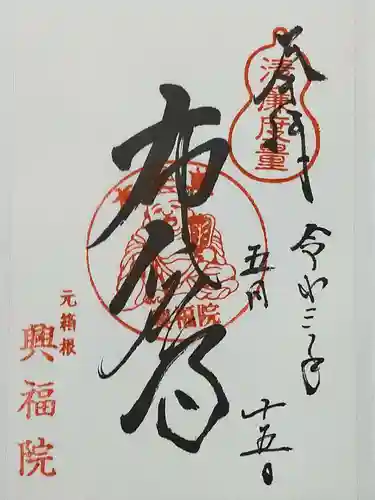 奉拝
清廉度量
令和三年
五月
十五日
布袋尊
興福院
元箱根
興福院